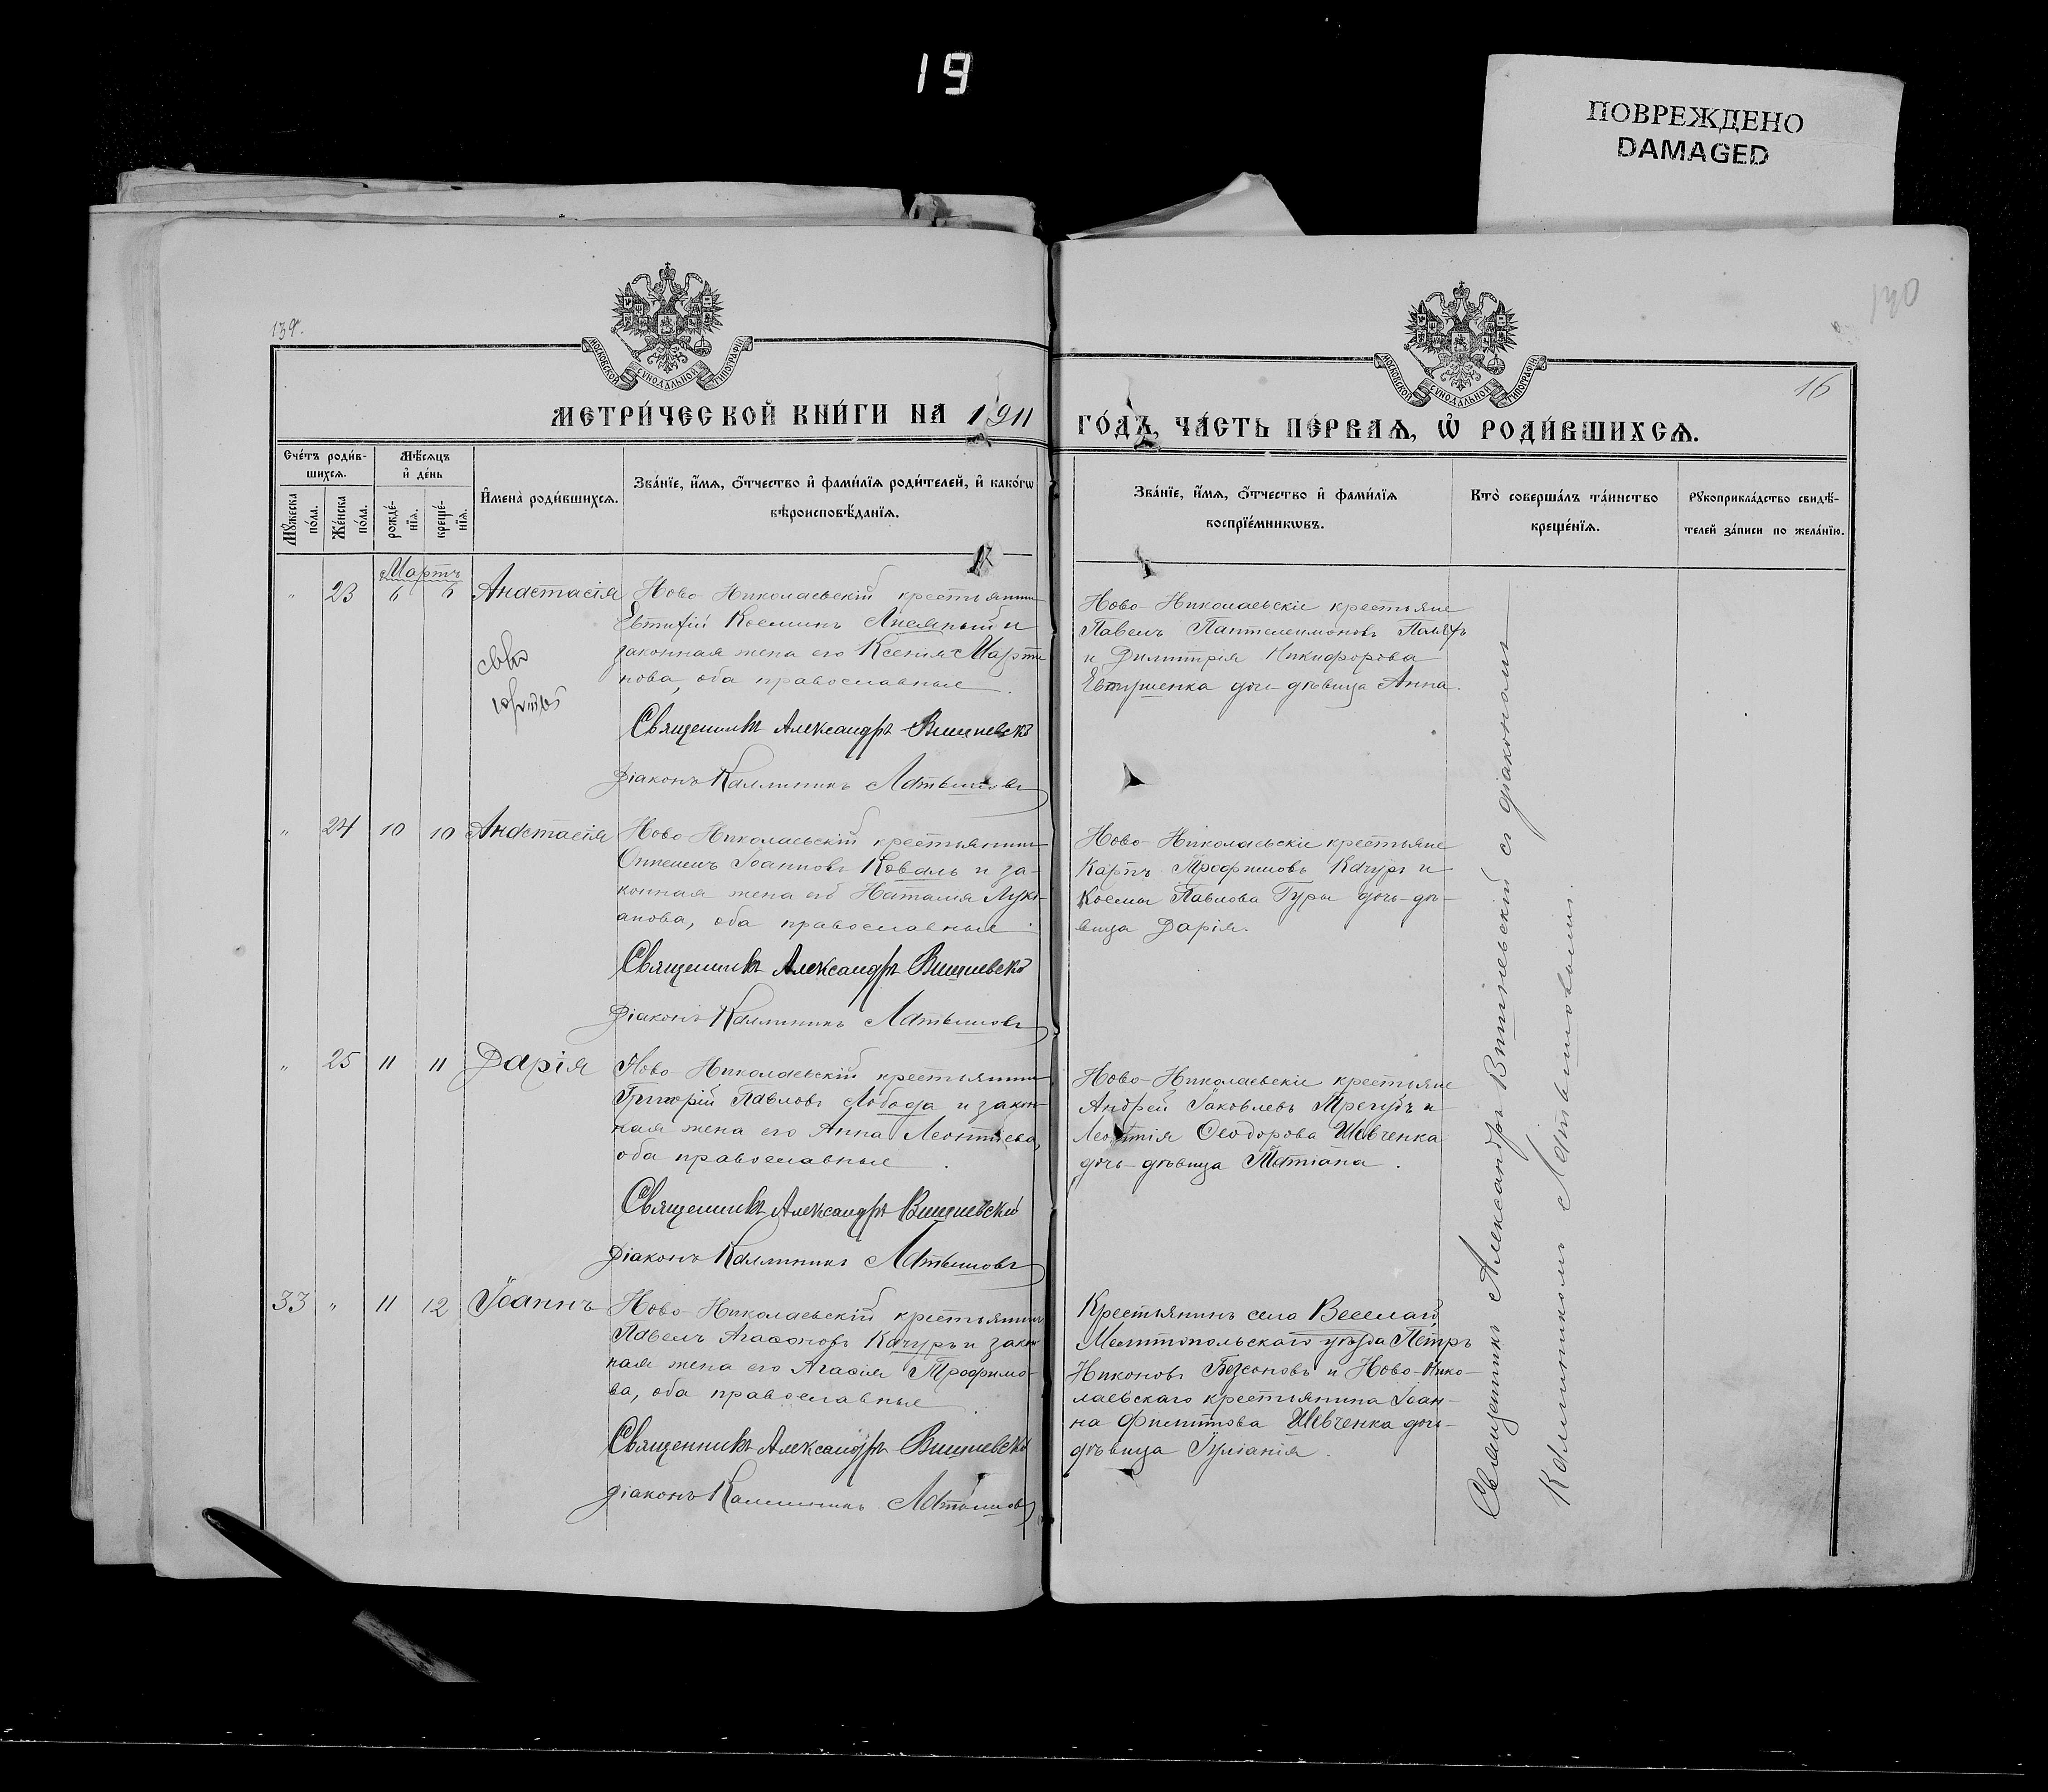 19
ПОВРЕЖДЕНО
DAMAGED
139.
130
16
МОСКОВСКОЙ СѴНОДАЛЬНОЙ ТИПОГРАФІИ
МОСКОВСКОЙ СѴНОДАЛЬНОЙ ТИПОГРАФІИ
МЕТРИ́ЧЕСКОЙ КНИ́ГИ НА 1911
ГО́ДЪ, ЧА́СТЬ ПЕ́РВАѦ, Ѡ҆ РОДИ́ВШИХСѦ.
Сче́тъ роди́в-
шихсѧ.
Мѣ́сѧцъ
и҆ де́нь
Мꙋ́жеска по́ла.
Же́нска по́ла.
рожде́-нїѧ.
креще́-нїѧ.
И҆мена̀ роди́вшихсѧ.
Зва́нїе, и҆́мѧ, ѻ҆́тчество и҆ фами́лїѧ роди́телей, и҆ како́гѡ
вѣроисповѣ́данїѧ.
Зва́нїе, и҆́мѧ, ѻ҆́тчество и҆ фами́лїѧ
воспрїе́мникѡвъ.
Кто̀ соверша́лъ та́инство
креще́нїѧ.
Рꙋкоприкла́дство свидѣ́-
телей за́писи по жела́нїю.
Мартъ
" 23 6 6 Анастасія
Ново-Николаевскій крестьянин
Евтихій Косминъ и
законная жена его Ксенія Марти
нова, оба православные
Священникъ Александръ Вишневскій
Діаконъ Каллиникъ Латышовъ
Ново-Николаевскіе крестьяне
Павелъ Пантелеимоновъ
и Димитрія Никифорова
Евтушенка дочь-дѣвица Анна.
" 24 10 10 Анастасія
Ново-Николаевскій крестьянин
Іоанновъ Коваль и за-
конная жена его Наталія Лукі-
анова, оба православные
Священникъ Александръ Вишневскій
Діаконъ Каллиникъ Латышовъ
Ново-Николаевскіе крестьяне
Карпъ Трофимовъ Качуръ и
Космы Павлова Гуры дочь-дѣ-
вица Дарія.
" 25 11 11 Дарія
Ново-Николаевскій крестьянин
Григорій Павловъ Лобода и закон-
ная жена его Анна Леонтіева,
оба православные.
Священникъ Александръ Вишневскій
Діаконъ Каллиникъ Латышовъ
Ново-Николаевскіе крестьяне
Андрей Іаковлевъ Трегубъ и
Леонтія Ѳеодорова Шевченка
дочь-дѣвица Татіана.
33 " 11 12 Іоаннъ
Ново-Николаевскій крестьянин
Павелъ Агаѳоновъ Качуръ и закон
ная жена его Агафія Трофимо-
ва, оба православные.
Священникъ Александръ Вишневскій
Діаконъ Каллиникъ Латышовъ
Крестьянинъ села Веселаго,
Мелитопольскаго уѣзда Петръ
Никоновъ Безсоновъ и Ново-Нико-
лаевскаго крестьянина Іоан-
на Филиппова Шевченка дочь-
дѣвица Іуліанія.
Священникъ Александръ Вишневскій съ діакономъ
Каллиникомъ Латышовымъ.